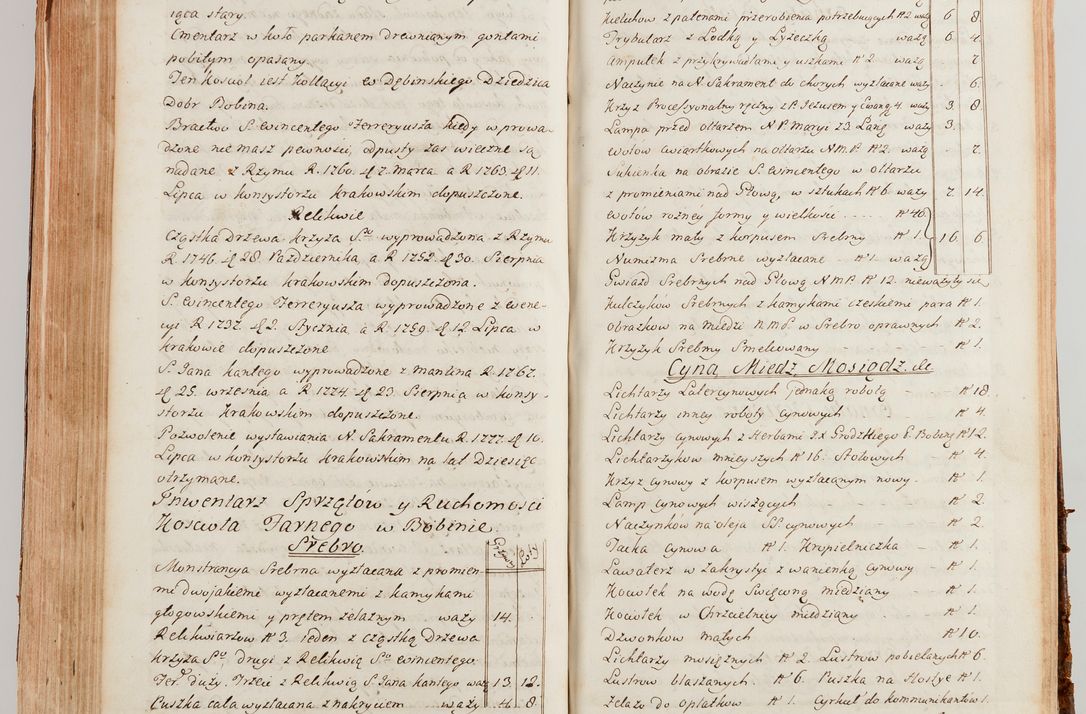 iąca stary.
Cmentarz w koło parkanem drewnianym gontami
pobitym opasany.
Ten kosciol iest kollacyi Dębinskiego Dziedzica
Dobr Bobina.
Bractwo S. Wincentego Ferreryusza kiedy wprowa
dzone nie masz pewności, odpusty zas wieczne są
nadane z Rzymu R. 1760. d. 7. marca a R 1763. d. 11.
Lipca w konsystorzu krakowskim dopuszczone.
Relikwie
Cząstka Drzewa krzyża S.go wyprowadzona z Rzymu
R. 1746. d. 28. Października, a R. 1752. d. 30. Sierpnia
w konsystorzu krakowskim dopuszczona.
S. Wincentego Ferreryusza wyprowadzone z Wene-
cyi R. 1737. d. 2. Stycznia a R. 1759. d. 12. Lipca w
krakowie dopuszczone
S. Jana kantego wyprowadzone z mantina R. 1767.
d. 25. września a R. 1774. d. 23. Sierpnia w konsy-
storzu krakowskim dopuszczone.
Pozwolenie wystawiania N. Sakramentu R. 1777. d. 16.
Lipca w konsystorzu krakowskim na lat Dziesięć
otrzymane.
Inwentarz Sprzętów y Ruchomości
Kościoła Farnego w Bobinie.
Srebro.
Grzywny Łoty
Monstrancya Srebrna wyzłacana z promien
mi dwojakiemi wyzłacanemi z kamykami
głogowskiemi y prętem żelaznym .. waży 14.
Relikwiarzow N 3. ieden z cząstką Drzewa
krzyża S.go drugi z Relikwią S.go Wincentego
Fer. duży. Trzeci z Relikwią S. Jana kantego waż 13. 12.
Puszka cała wyzłacana z nakryciem .. waży 8.
Kielichow z patenami przerobienia potrzebuiących N 2. ważą 6 8.
Trybularz z Łodką y Łyżeczką ważą 6 4.
Ampułek z przykrywadłami y uszkami N 2. ważą 7
Naczynie na N. Sakrament do chorych wyzłacane waży - 6.
Krzyż Processyonalny ręczny z P. Jezusem y Ewang. 4. waży 3 8.
Lampa przed ołtarzem N P. Maryi z 3. Lanc waży 3.
wotow cwiartkowych na ołtarzu N. M. P. N 2. ważą - 7.
Sukienka na obrazie S. Wincentego w ołtarzu
z promieniami nad Głową, w sztukach N 6. waży 7 14.
wotow rożney formy y wielkości .... N 40.
Krzyżyk mały z korpusem Srebrny N 1. 16. 6.
Numizma Srebrne wyzłacane - N 1. ważą
Gwiazd Srebrnych nad Głową N. M. P. N 12. nieważyły się
Kulczyków Srebrnych z kamykami czeskiemi para N 1.
obrazkow na miedzi N. M. P. w Srebro oprawnych N 2.
Krzyżyk Srebrny Smelcowany - - - N 1.
Cyna Miedź Mosiądz. etc
Lichtarzy Latercynowych jednaką robotą - N 18.
Lichtarzy inney roboty cynowych - N 4.
Lichtarzy cynowych z Herbami J. X Grodzkiego P. Bobiny N 12.
Lichtarzykow mnieyszych N 16. Stołowych - N 4.
Krzyż cynowy z korpusem wyzłacanym nowy - N 1.
Lamp cynowych wiszących - - - N 2.
Naczynków na oleja SS. cynowych - - N 2.
Tacka cynowa N 1. Kropielniczka - N 1.
Lawaterz w Zakrystyi z wanienką cynowy - N 1.
Kociołek na wodę Swięconą miedziany - N 1.
Kociołek w Chrzcielnicy miedziany - N 1.
Dzwonkow małych N 10.
Lichtarzy mosiężnych N 2. Lustrow pobielanych N 6.
Lustrow blaszanych. N 6. Puszka na Hostye N 1.
Żelazo do opłatkow N 1. Cyrkuł do kommunikantow 1.